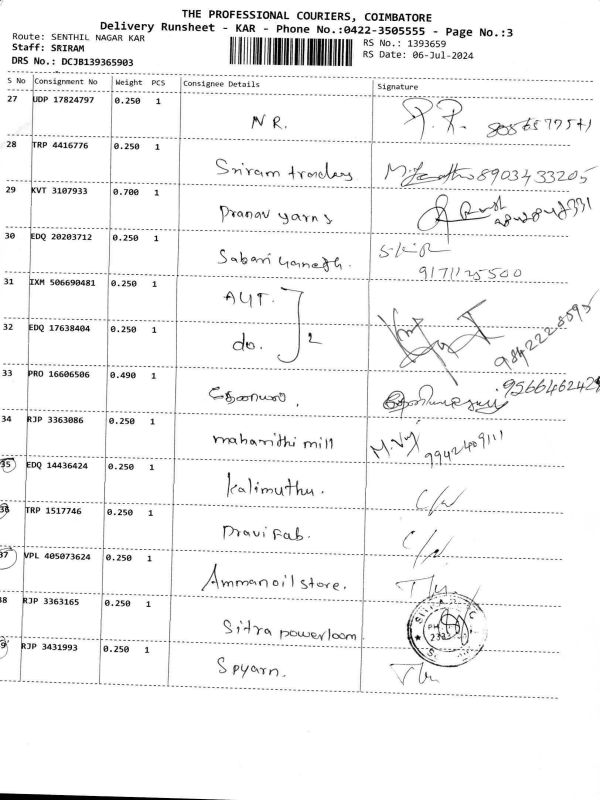 THE PROFESSIONAL COURIERS, COIMBATORE
Delivery Runsheet - KAR - Phone No.:0422-3505555 - Page No.:3
Route: SENTHIL NAGAR KAR
Staff: SRIRAM
DRS No.: DCJB139365903
RS No.: 1393659
RS Date: 06-Jul-2024
S No Consignment No Weight PCS Consignee Details Signature
27 UDP 17824797 0.250 1 N R.
28 TRP 4416776 0.250 1 Sriram traders 8903433205
29 KVT 3107933 0.700 1 Pranav yarns
30 EDQ 20203712 0.250 1 Sabari
9171125500
31 IXM 506690481 0.250 1
32 EDQ 17638404 0.250 1 do. 2 9842228595
33 PRO 16606506 0.490 1
34 RJP 3363086 0.250 1 mill 9942409111
35 EDQ 14436424 0.250 1 Kalimuthu.
36 TRP 1517746 0.250 1 Fab.
37 VPL 405073624 0.250 1 Amman oil store.
38 RJP 3363165 0.250 1 Sitra powerloom
39 RJP 3431993 0.250 1 Spyarn.